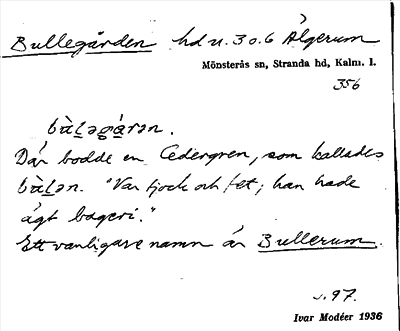 Bullegården hd u. 3 o. 6 Ålgerum
Mönsterås sn, Stranda hd, Kalm. l.
356
bùḷəgɑ́rən.
Där bodde en Cedergren, som kallades
bùḷən. "Var tjock och fet; han hade
ägt bageri."
Ett vanligare namn är Bullerum.
s. 97.
Ivar Modéer 1936